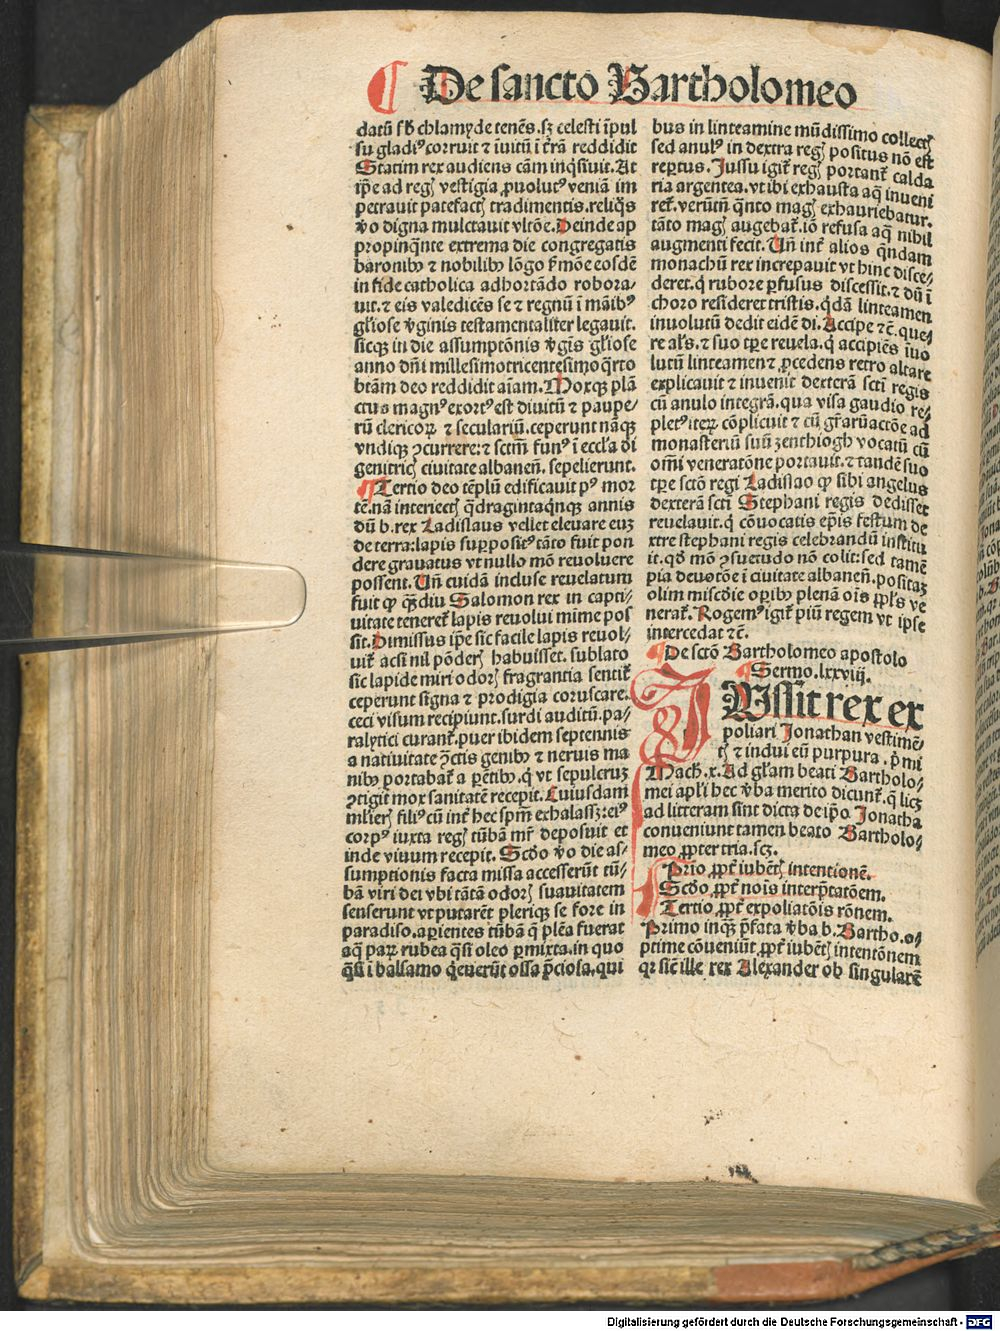 De sancto Bartholomeo
datū sb̄ chlamyde tenēs. sꝫ celesti īpul
su gladiꝰ corruit ⁊ īuitū ī t̄rā reddidit
Statim rex audiens cām inq̄siuit. At
ip̄e ad regꝭ vestigia ꝓuolutꝰ veniā im
petrauit patefactꝭ tradimentis. reliq̄s
v̄o digna mulctauit vltōe. Deinde ap
propinq̄nte extrema die congregatis
baronibꝰ ⁊ nobilibꝰ lōgo s̄mōe eosdē
in fide catholica adhortādo robora-
uit. ⁊ eis valedicēs se ⁊ regnū ī māibꝰ
gl̄iose v̄ginis testamentaliter legauit.
sicqꝫ in die assumptōnis v̄gīs gl̄iose
anno dn̄i millesimotricentesimo q̄rto
btām deo reddidit aīam. Moxqꝫ plā
ctus magnꝰ exortꝰ est diuitū ⁊ paupe-
rū clericoꝝ ⁊ seculariū. ceperunt nāqꝫ
vndiqꝫ ꝯcurrere: ⁊ sctm̄ funꝰ ī eccl̄a di
genitricꝭ ciuitate albaneñ. sepelierunt.
Tertio deo tēplū edificauit pꝰ mor
tē. nā interiectꝭ q̄dragintaq̄nqꝫ annis
dū b. rex Ladislaus vellet eleuare euꝫ
de terra: lapis suꝑpositꝰ tāto fuit pon
dere grauatus vt nullo mō reuoluere
possent. Uñ cuidā incluse reuelatum
fuit ꝙ q̄ꝫdiu Salomon rex in capti-
uitate teneret̄ lapis reuolui mime pos
sit. Dimissus ip̄e sic facile lapis reuol-
uit̄ acsi nil pōderꝭ habuisset. sublato
sic lapide miri odorꝭ fragrantia sentit̄
ceperunt signa ⁊ prodigia coruscare.
ceci visum recipiunt. surdi auditū. pa-
ralytici curant̄. puer ibidem septennis
a natiuitate ꝯctis genibꝰ ⁊ neruis ma
nibꝰ portabat̄ a pētibꝰ. q̄ vt sepulcruꝫ
ꝯtigit mox sanitatē recepit. Cuiusdam
ml̄ierꝭ filiꝰ cū int̄ hec spm̄ exhalassꝫ: eiꝰ
corpꝰ iuxta regꝭ tūbā mr̄ deposuit et
inde viuum recepit. Scd̄o v̄o die as-
sumptionis facta missa accesserūt tū-
bā viri dei vbi tātā odorꝭ suauitatem
senserunt vt putarēt pleriqꝫ se fore in
paradiso. aperientes tūbā q̄ plēa fuerat
aq̄ paꝝ rubea q̄si oleo ꝑmixta. in quo
q̄si ī balsamo q̄euerūt ossa p̄ciosa. qui
bus in linteamine mūdissimo collectꝭ
sed anulꝰ in dextra regꝭ positus nō est
reꝑtus. Jussu igit̄ regꝭ portant̄ calda
ria argentea. vt ibi exhausta aq̄ inueni
ret̄. verūtñ q̄nto magꝭ exhauriebatur.
tāto magꝭ augebat̄. iō refusa aq̄ nihil
augmenti fecit. Uñ int̄ alios q̄ndam
monachū rex increpauit vt hinc disce-
deret. q̄ rubore ꝑfusus discessit. ⁊ dū ī
choro resideret tristis. q̄dā linteamen
inuolutū dedit eidē di. Accipe ⁊c̄. que-
re al̄s. ⁊ suo tꝑe reuela. q̄ accipiēs īuo
lutū linteamen ⁊ ꝓcedens retro altare
explicauit ⁊ inuenit dexterā scti regis
cū anulo integrā. qua visa gaudio re-
pletꝰ iteꝝ cōplicuit ⁊ cū gr̄aꝝactōe ad
monasteriū suū zenthiogh vocatū cū
om̄i veneratōne portauit. ⁊ tandē suo
tꝑe sctō regi Ladislao ꝙ sibi angelus
dexterā scti Stephani regis dedisset
reuelauit. q̄ cōuocatis ep̄is festum de
xtre stephani regis celebrandū institu
it. qd̄ mō ꝯsuetudo nō colit: sed tamē
pia deuotōe ī ciuitate albaneñ. positaꝫ
olim miscd̄ie oꝑibꝰ plenā oīs ppl̄s ve
nerat̄. Rogemꝰ igit̄ piū regem vt ipse
intercedat ⁊c̄.
De sctō Bartholomeo apostolo
Sermo. lxxviij.
JUssit rex ex
poliari Jonathan vestimē-
tꝭ ⁊ indui eū purpura. p̄mi
Mach. x. Ad gl̄am beati Bartholo-
mei apl̄i hec v̄ba merito dicunt̄. q̄ licꝫ
ad litteram sint dicta de ip̄o Jonatha
conueniunt tamen beato Bartholo-
meo ꝓpter tria. scꝫ.
Prīo ꝓpt̄ iubētꝭ intentionē.
Scd̄o ꝓpt̄ noīs interp̄tatōem.
Tertio ꝓpt̄ expoliatōis rōnem.
Primo inqꝫ p̄fata v̄ba b. Bartho. o-
ptime cōueniūt ꝓpt̄ iubētꝭ intentōnem
qꝛ sic̄ ille rex Alexander ob singularē
Digitalisierung gefördert durch die Deutsche Forschungsgemeinschaft - DFG